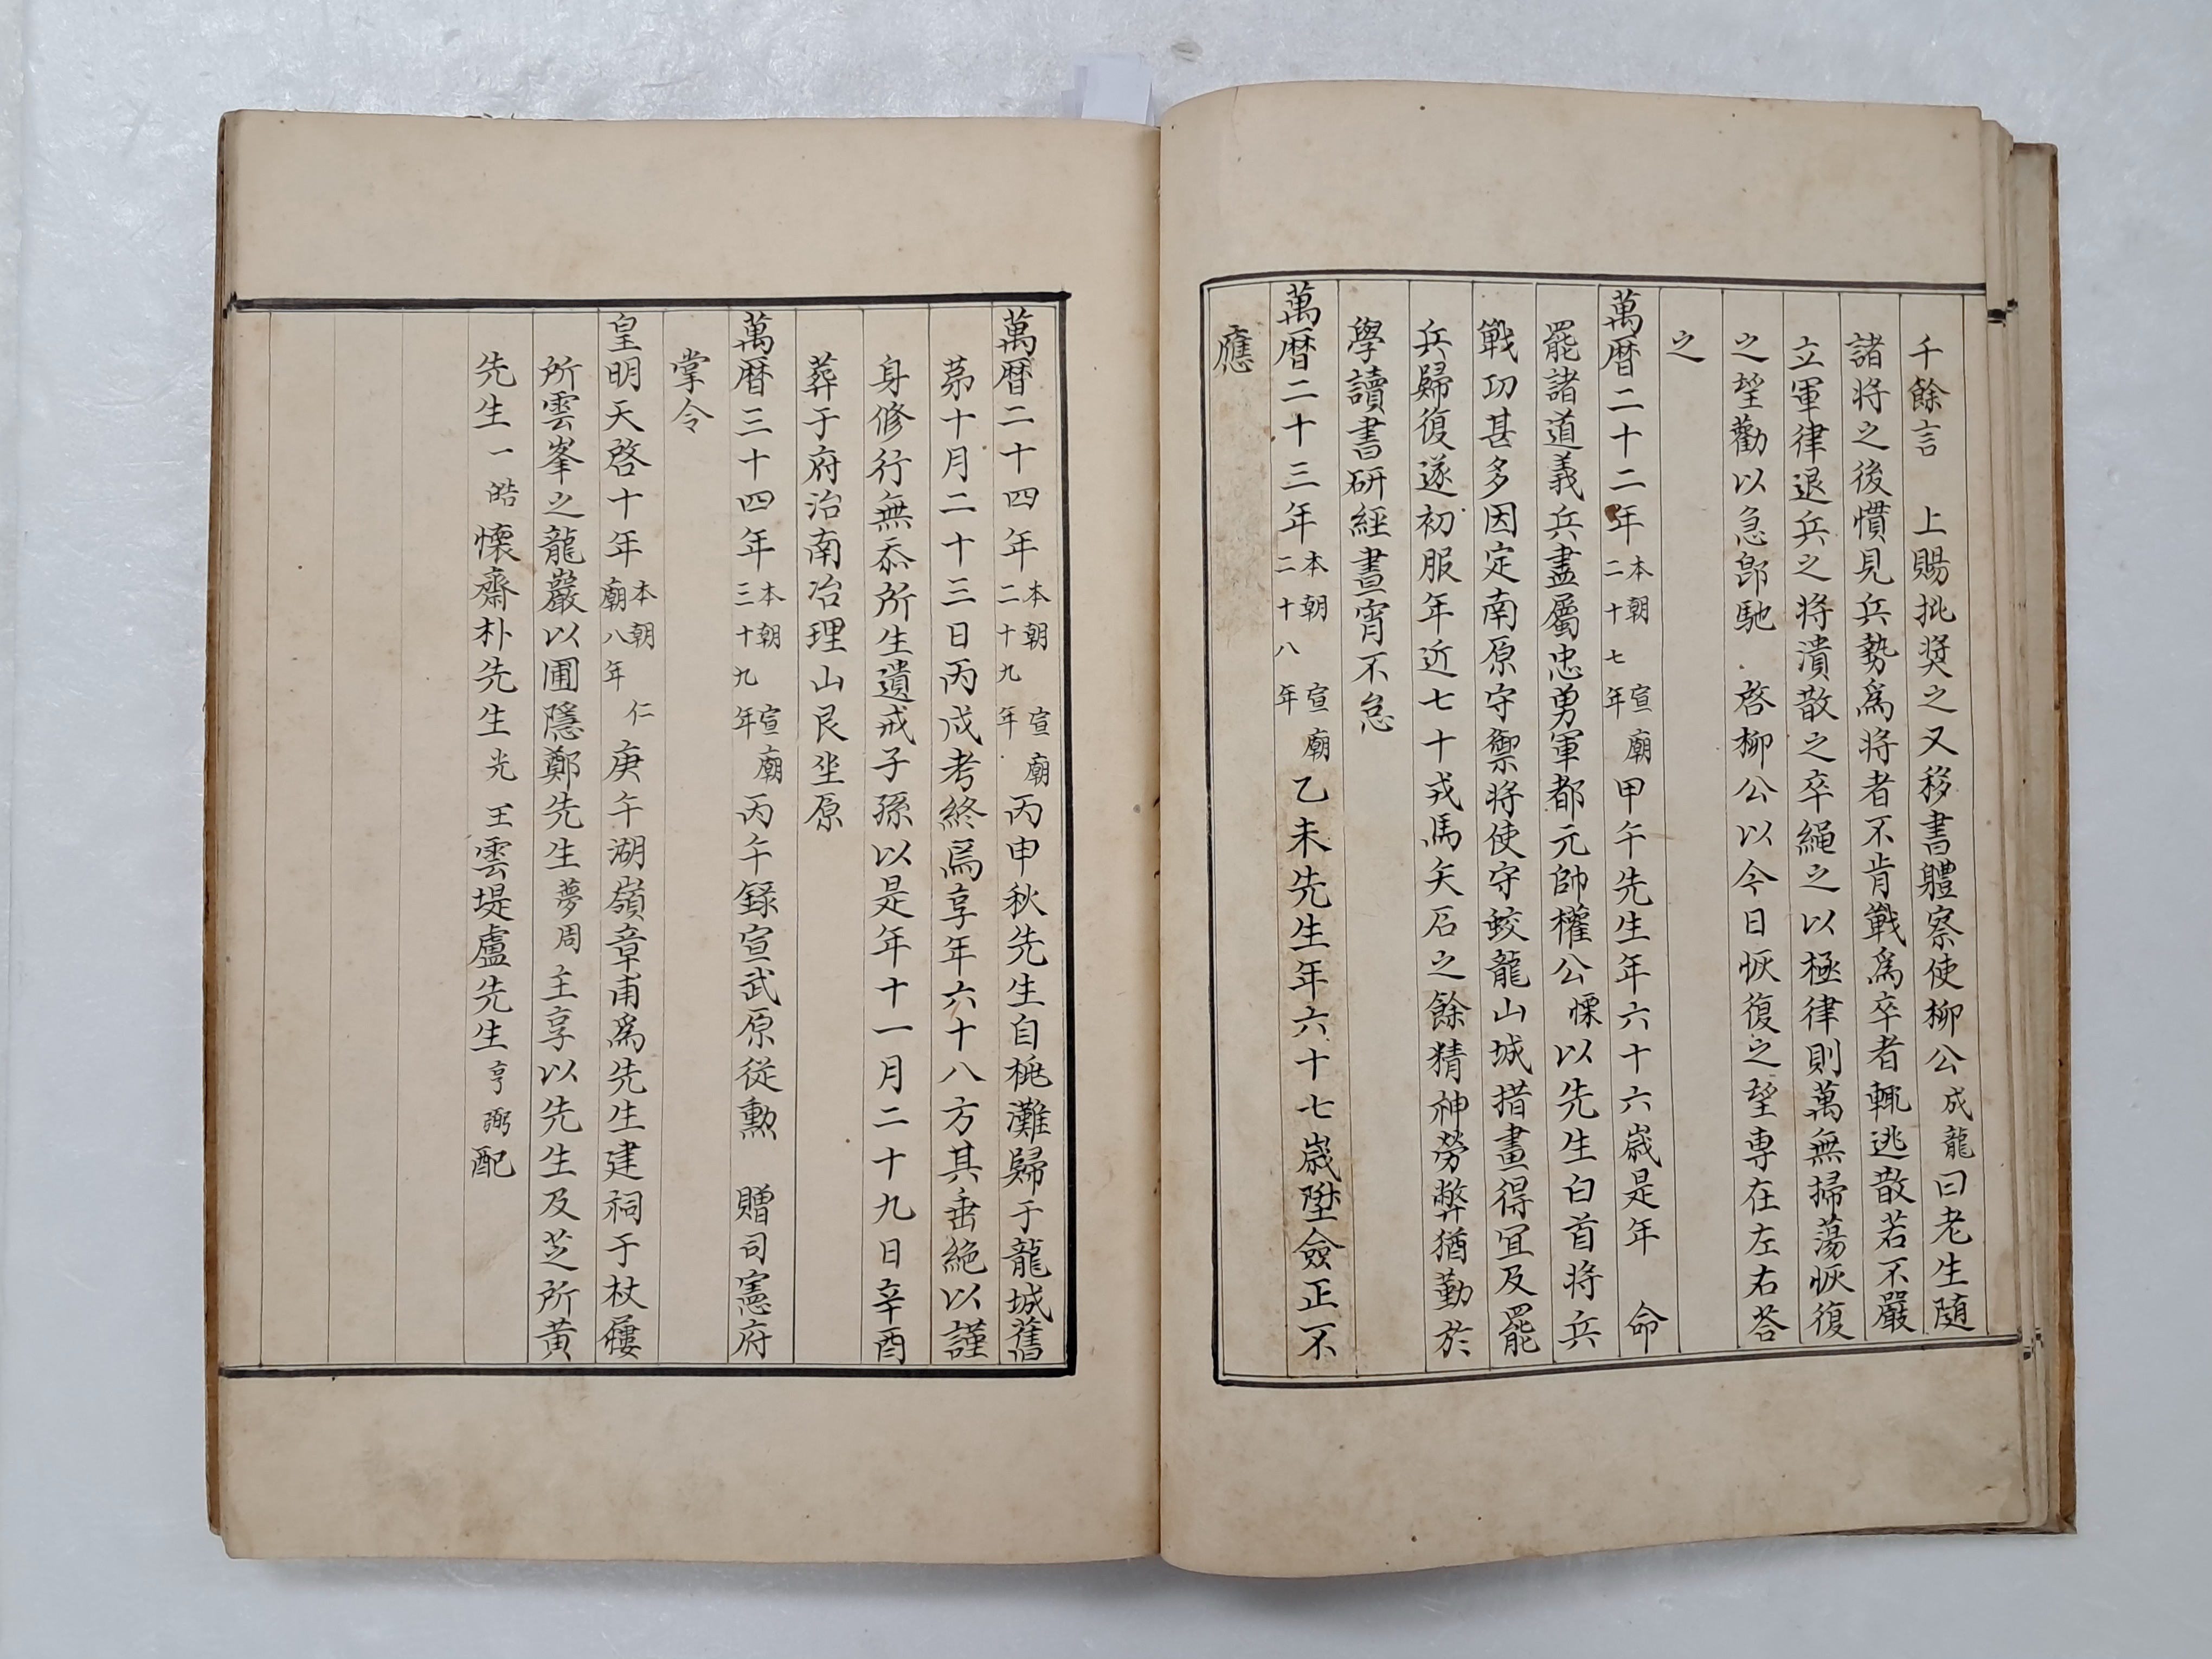 千餘言　上賜批奬之又移書體察使柳公成龍曰老生随
諸将之後慣見兵勢爲将者不肯戰爲卒者輒逃散若不嚴
立軍律退兵之将潰散之卒繩之以極律則萬無掃蕩恢復
之望勸以急郎馳　啓柳公以今日恢復之望専在左右荅
之
萬曆二十二年本朝宣廟二十七年甲午先生年六十六歲是年　命
罷諸道義兵盡屬忠勇軍都元帥權公慄以先生白首将兵
戰功甚多因定南原守禦将使守蛟龍山城措畫得宜及罷
兵歸復遂初服年近七十戎馬矢石之餘精神勞弊猶勤於
學讀書研經晝宵不怠
萬曆二十三年本朝宣廟二十八年乙未先生年六十七歲陞僉正不
應
萬曆二十四年本朝宣廟二十九年丙申秋先生自桃灘歸于龍城舊
苐十月二十三日丙戌考終焉享年六十八方其垂絶以謹
身修行無忝所生遺戒子孫以是年十一月二十九日辛酉
葬于府治南冶理山艮坐原
萬曆三十四年本朝宣廟三十九年丙午録宣武原従勲　贈司憲府
掌令
皇明天啓十年本朝仁廟八年庚午湖嶺章甫爲先生建祠于杖屨
所雲峯之龍巖以圃隱鄭先生夢周主享以先生及芝所黄
先生一皓懷齋朴先生光玉雲堤盧先生亨弼配